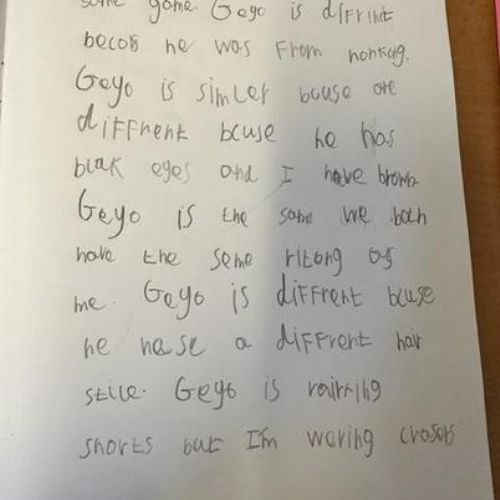 same game. Geyo is diffrint
becos he was from honkog.
Geyo is simler bcuse are
diffrent bcuse he has
blak eyes and I have brown
Geyo is the same we both
have the seme ritong as
me. Geyo is diffrent bcuse
he hase a diffrent hair
stile. Geyo is
shorts but I'm woring crosors